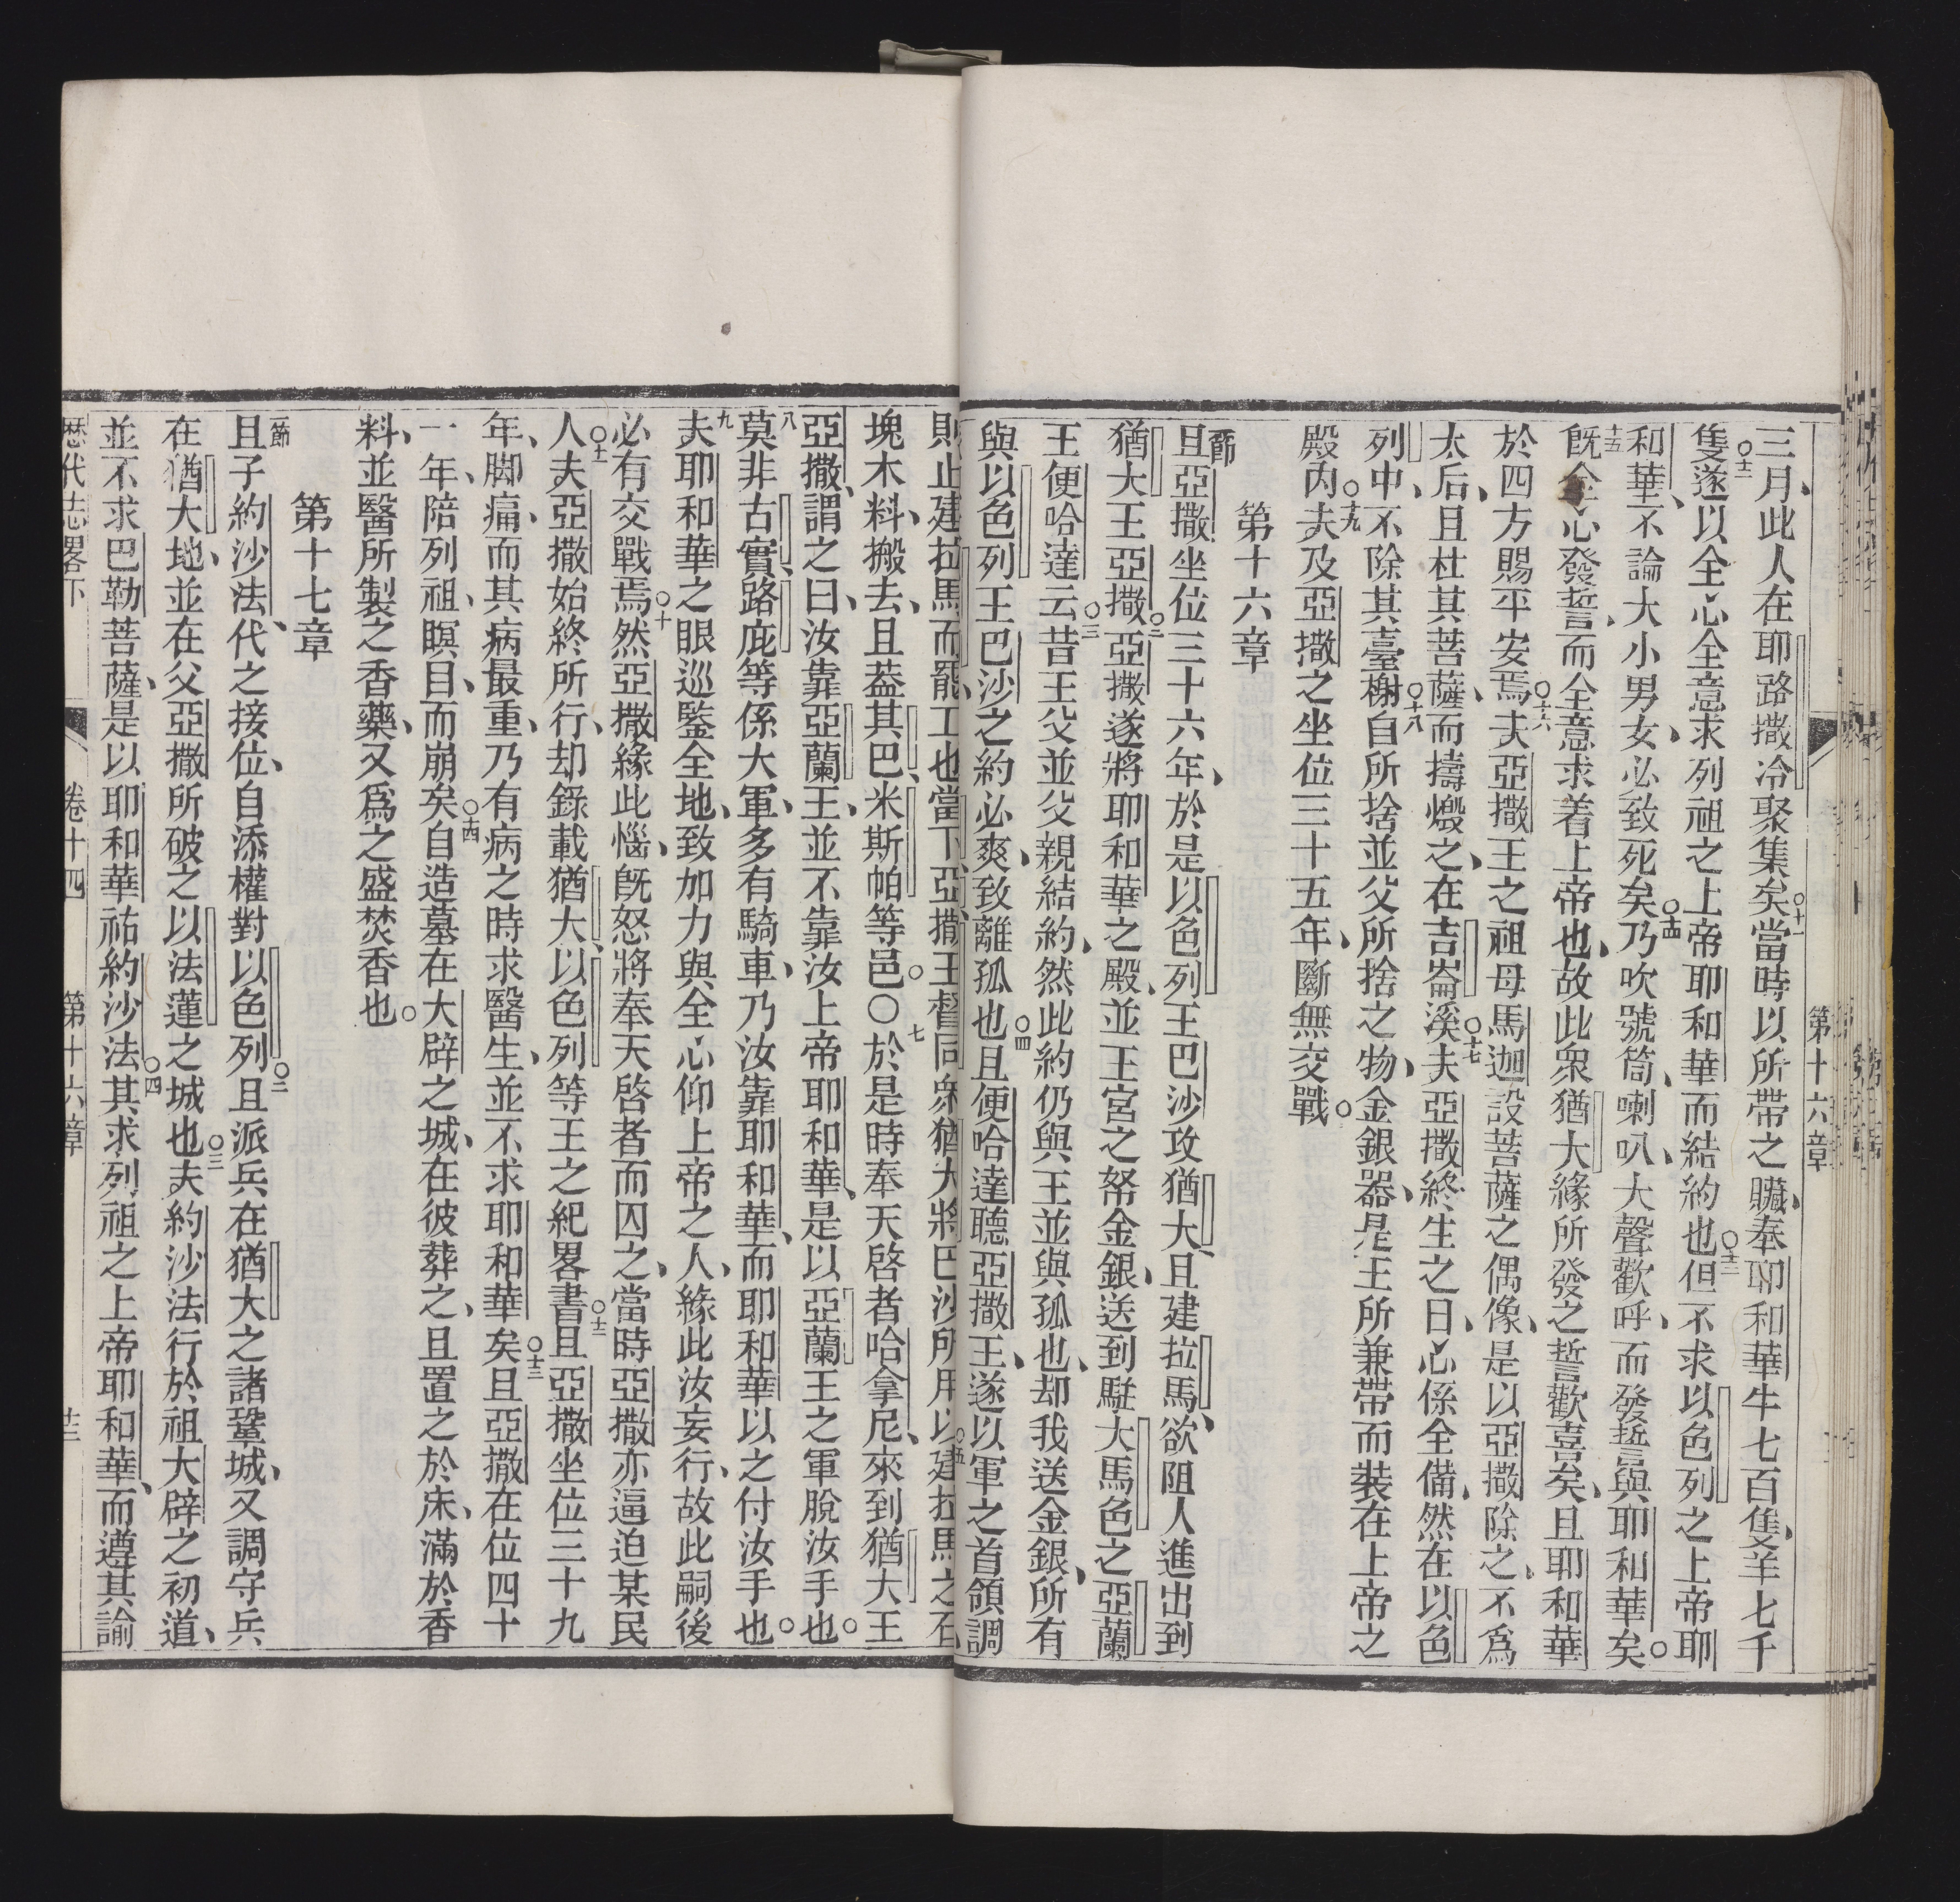 第十六章
三月此人在耶路撒冷聚集矣○十一當時以所帶之贓奉耶和華牛七百隻羊七千
隻○十二遂以全心全意求列祖之上帝耶和華而結約也○十三但不求以色列之上帝耶
和華不論大小男女必致死矣○十四乃吹號筒喇叭大聲歡呼而發誓與耶和華矣○
十五旣全心發誓而全意求着上帝也故此衆猶大緣所發之誓歡喜矣且耶和華
於四方賜平安焉○十六夫亞撒王之祖母馬迦設菩薩之偶像是以亞撒除之不爲
太后且杜其菩薩而擣燬之在吉崙溪○十七夫亞撒終生之日心係全備然在以色
列中不除其臺榭○十八自所捨並父所捨之物金銀器是王所兼帶而裝在上帝之
殿內○十九夫及亞撒之坐位三十五年斷無交戰○
第十六章
一節且亞撒坐位三十六年於是以色列王巴沙攻猶大且建拉馬欲阻人進出到
猶大王亞撒○二亞撒遂將耶和華之殿並王宮之帑金銀送到駐大馬色之亞蘭
王便哈達云○三昔王父並父親結約然此約仍與王並與孤也却我送金銀所有
與以色列王巴沙之約必爽致離孤也○四且便哈達聽亞撒王遂以軍之首領調
則止建拉馬而罷工也當下亞撒王督同衆猶大將巴沙所用以建拉馬之石
塊木料搬去且葢其巴米斯帕等邑○○七於是時奉天啓者哈拿尼來到猶大王
亞撒謂之曰汝靠亞蘭王並不靠汝上帝耶和華是以亞蘭王之軍脫汝手也○
八莫非古實路庇等係大軍多有騎車乃汝靠耶和華而耶和華以之付汝手也○
九夫耶和華之眼巡鑒全地致加力與全心仰上帝之人緣此汝妄行故此嗣後
必有交戰焉○十然亞撒緣此惱旣怒將奉天啓者而囚之當時亞撒亦逼迫某民
人○十一夫亞撒始終所行却錄載猶大以色列等王之紀畧書○十二且亞撒坐位三十九
年脚痛而其病最重乃有病之時求醫生並不求耶和華矣○十三且亞撒在位四十
一年陪列祖瞑目而崩矣○十四自造墓在大辟之城在彼葬之且置之於床滿於香
料並醫所製之香藥又爲之盛焚香也○
第十七章
一節且子約沙法代之接位自添權對以色列○二且派兵在猶大之諸鞏城又調守兵
在猶大地並在父亞撒所破之以法蓮之城也○三夫約沙法行於祖大辟之初道
並不求巴勒菩薩是以耶和華祐約沙法○四其求列祖之上帝耶和華而遵其諭
歷代志畧下 卷十四 第十六章 十三